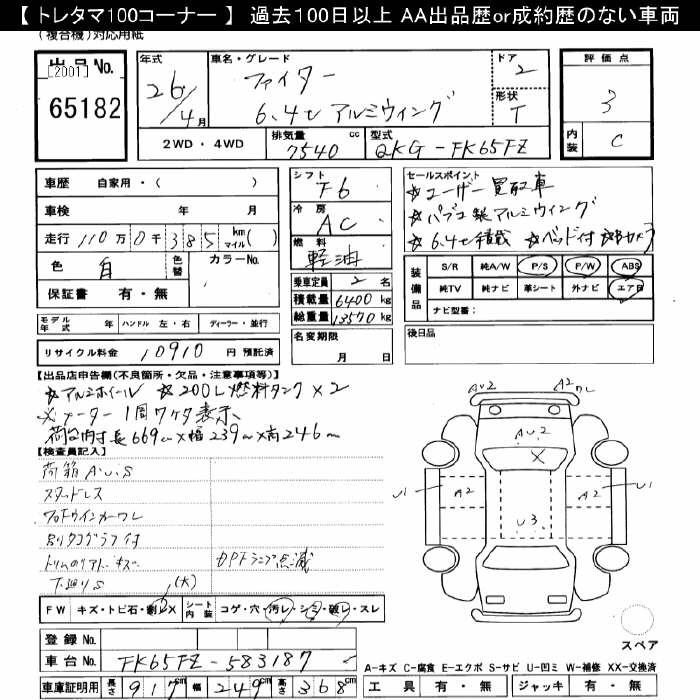 【 トレタマ100コーナー 】 過去100日以上 AA出品歴or成約歴のない車両
(複合機)対応用紙
出品No.
[2001]
65182
年式
26/4月
車名・グレード
ファイター
6.4t アルミウィング
ドア 2
形状 T
評価点
3
内装 C
2WD・4WD
排気量 7540 cc
型式 QKG-FK65FZ
車歴 自家用・( )
車検 年 月
走行 110万0千385 km マイル( )
色 白 色替 カラーNo.
保証書 有・無
シフト F6
冷房 AC
燃料 軽油
乗車定員 2名
積載量 6400kg
総重量 13570kg
セールスポイント
☆ユーザー買取車
☆パブコ製アルミウィング
☆6.4t積載 ☆ベッド付 ☆Bカメラ
装備品 S/R 純A/W P/S P/W ABS
純TV 純ナビ 革シート 外ナビ エアB
ナビ型番:
モデル年式 年 ハンドル 左・右 ディーラー・並行
名変期限
月 日
後日品
リサイクル料金 10910 円 預託済
【出品店申告欄(不良箇所・欠品・注意事項等)】
☆アルミホイール ☆200L燃料タンク×2
※メーター1周7ケタ表示、
荷台内寸長669cm×幅239cm×高246cm
【検査員記入】
荷箱A.U.S
スタッドレス
フロトウインカーワレ
別タコグラフ付
トリムのリアト、キズ
下廻りS (大)
DPFランプ点滅
A2
A2
ワレ
A2
U2
X
U1
A2
A2
U1
U3
FW キズ・トビ石・劇レX シート内装 コゲ・穴・汚レ・シミ・破レ・スレ
登録No.
車台No. FK65FZ-583187
車庫証明用 長さ 917cm 幅 249cm 高さ 368cm
スペア
A-キズ C-腐食 E-エクボ S-サビ U-凹ミ W-補修 XX-交換済
工具 有・無 ジャッキ 有・無